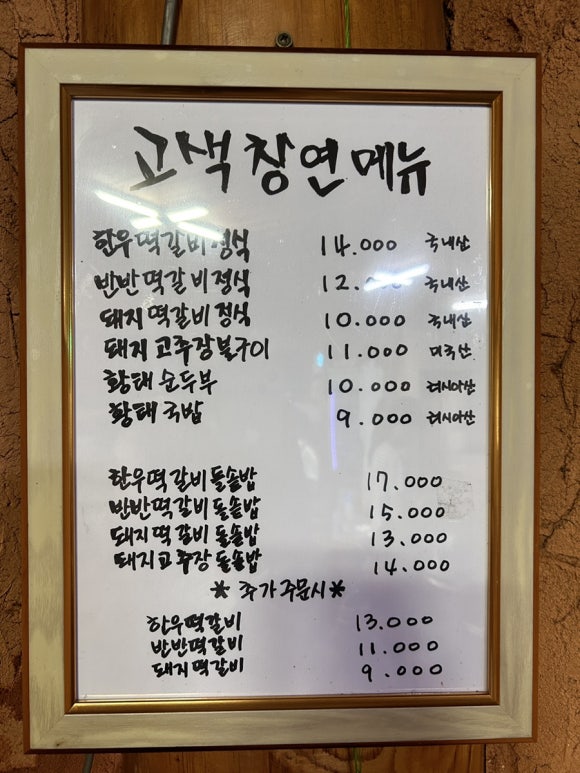 고색창연메뉴
한우떡갈비정식 14.000 국내산
반반떡갈비정식 12.000 국내산
돼지떡갈비정식 10.000 국내산
돼지고추장불구이 11.000 미국산
황태순두부 10.000 러시아산
황태국밥 9.000 러시아산
한우떡갈비돌솥밥 17.000
반반떡갈비돌솥밥 15.000
돼지떡갈비돌솥밥 13.000
돼지고추장돌솥밥 14.000
* 추가주문시 *
한우떡갈비 13.000
반반떡갈비 11.000
돼지떡갈비 9.000